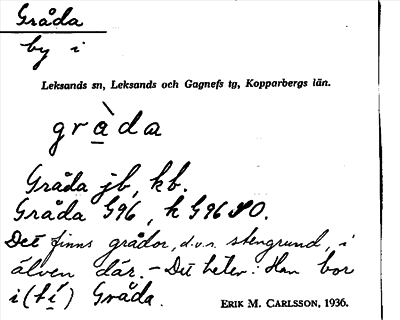 Gråda
by i
Leksands sn, Leksands och Gagnefs tg, Kopparbergs län.
gràda
Gråda jb, kb.
Gråda G96, k G96 SO.
Det finns grådor, d.v.s. stengrund, i
älven där. – Det heter: Han bor
i(ti) Gråda.
ERIK M. CARLSSON, 1936.